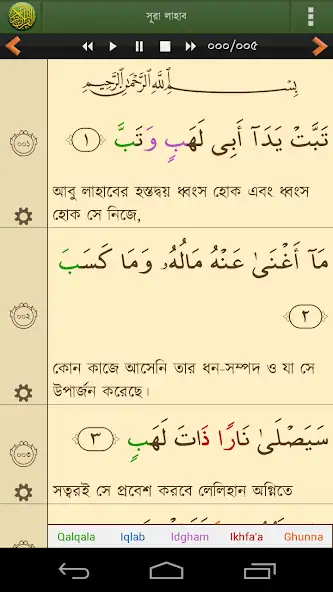 সূরা লাহাব
০০০/০০৫
بِسْمِ ٱللَّهِ ٱلرَّحْمَٰنِ ٱلرَّحِيمِ
০০১
تَبَّتْ يَدَآ أَبِى لَهَبٍ وَتَبَّ ﴿١﴾
আবু লাহাবের হস্তদ্বয় ধ্বংস হোক এবং ধ্বংস
হোক সে নিজে,
০০২
مَآ أَغْنَىٰ عَنْهُ مَالُهُۥ وَمَا كَسَبَ
﴿٢﴾
কোন কাজে আসেনি তার ধন-সম্পদ ও যা সে
উপার্জন করেছে।
০০৩
سَيَصْلَىٰ نَارًا ذَاتَ لَهَبٍ ﴿٣﴾
সত্বরই সে প্রবেশ করবে লেলিহান অগ্নিতে
Qalqala Iqlab Idgham Ikhfa'a Ghunna